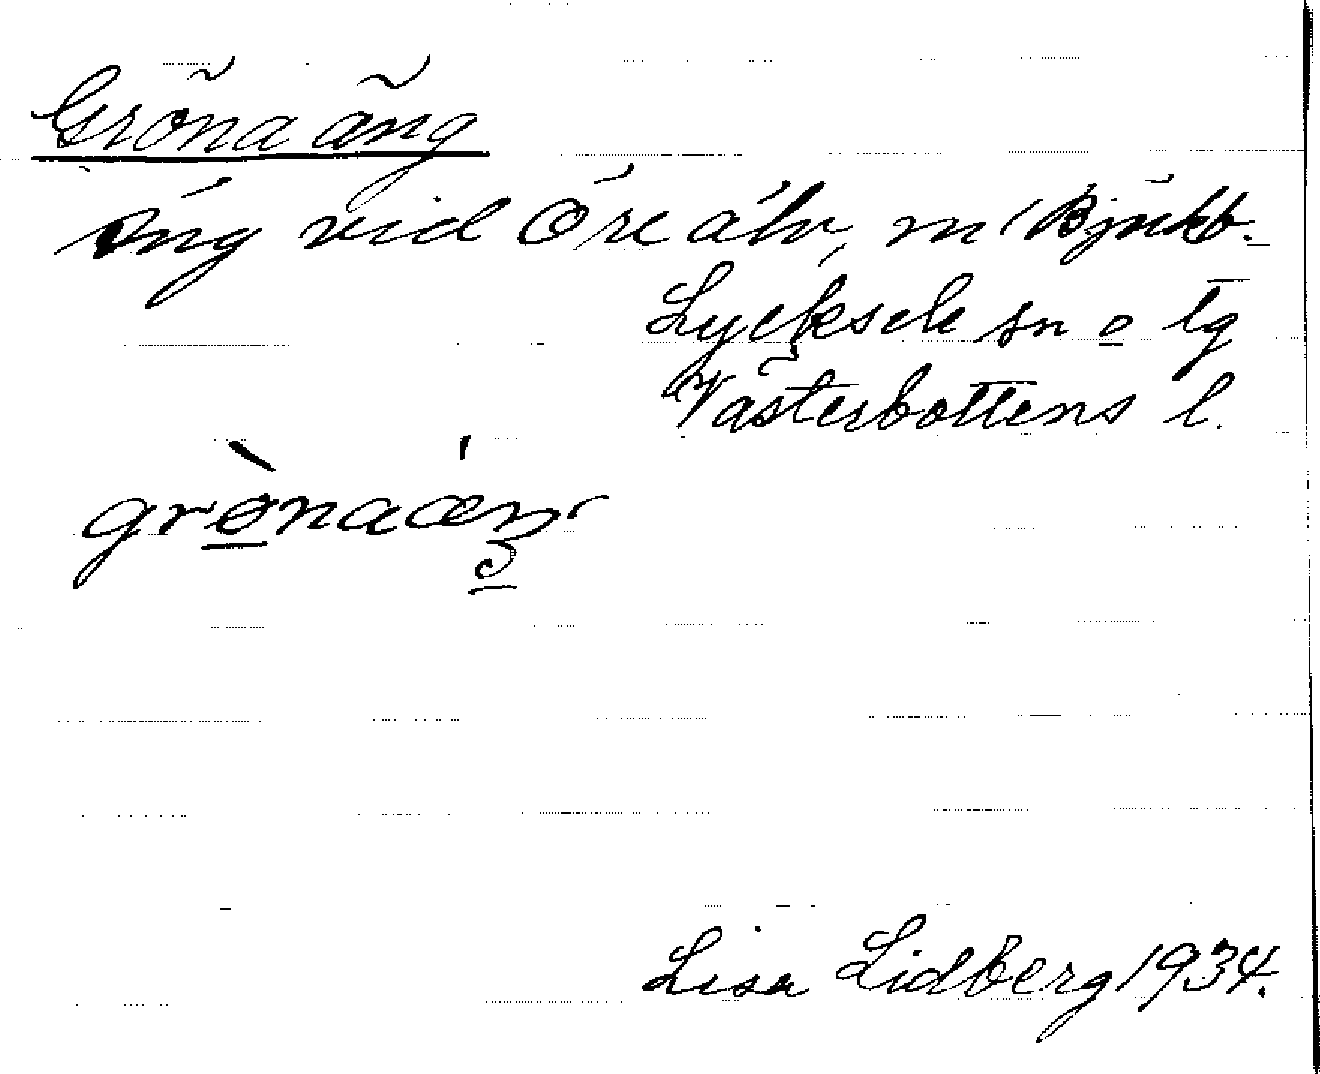 Gröna äng
Äng vid Öre älv, m
Lycksele sn o lg
Västerbottens l.
grònaǽŋ
Lisa Lidberg 1934.